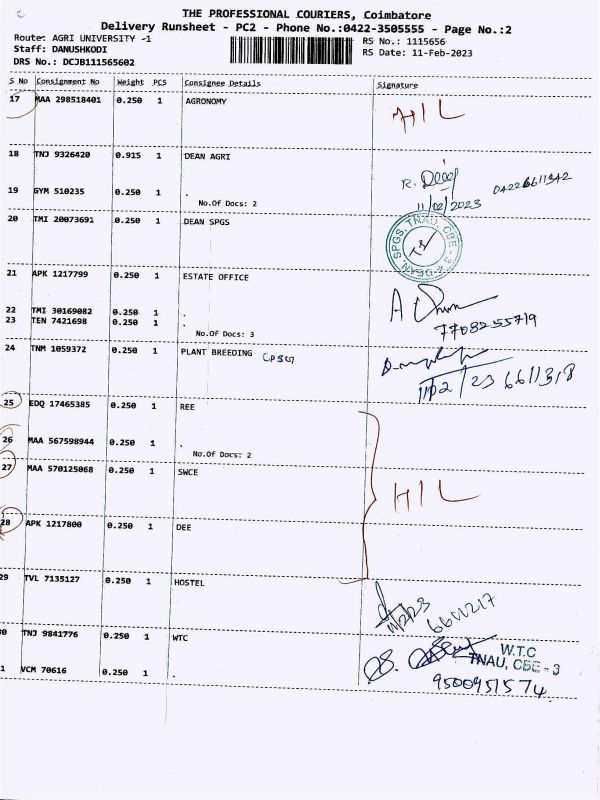 THE PROFESSIONAL COURIERS, Coimbatore
Delivery Runsheet - PC2 - Phone No.:0422-3505555 - Page No.:2
Route: AGRI UNIVERSITY -1
RS No.: 1115656
Staff: DANUSHKODI
RS Date: 11-Feb-2023
DRS No.: DCJB111565602
S No Consignment No Weight PCS Consignee Details Signature
17 MAA 298518401 0.250 1 AGRONOMY
H/L
18 TNJ 9326420 0.915 1 DEAN AGRI
R. 04226611342
19 GYM 510235 0.250 1 .
11/02/2023
No.Of Docs: 2
20 TMI 20073691 0.250 1 DEAN SPGS
DEAN, SPGS, TNAU, CBE - 3
21 APK 1217799 0.250 1 ESTATE OFFICE
22 TMI 30169082 0.250 1 .
23 TEN 7421698 0.250 1 .
7708255719
No.Of Docs: 3
24 TNM 1059372 0.250 1 PLANT BREEDING
11/02/23 6611318
25 EDQ 17465385 0.250 1 REE
26 MAA 567598944 0.250 1 .
No.Of Docs: 2
27 MAA 570125068 0.250 1 SWCE
H/L
28 APK 1217800 0.250 1 DEE
29 TVL 7135127 0.250 1 HOSTEL
11/2/23 6611217
0 TNJ 9841776 0.250 1 WTC
W.T.C
TNAU, CBE - 3
1 VCM 70616 0.250 1 .
9500951574